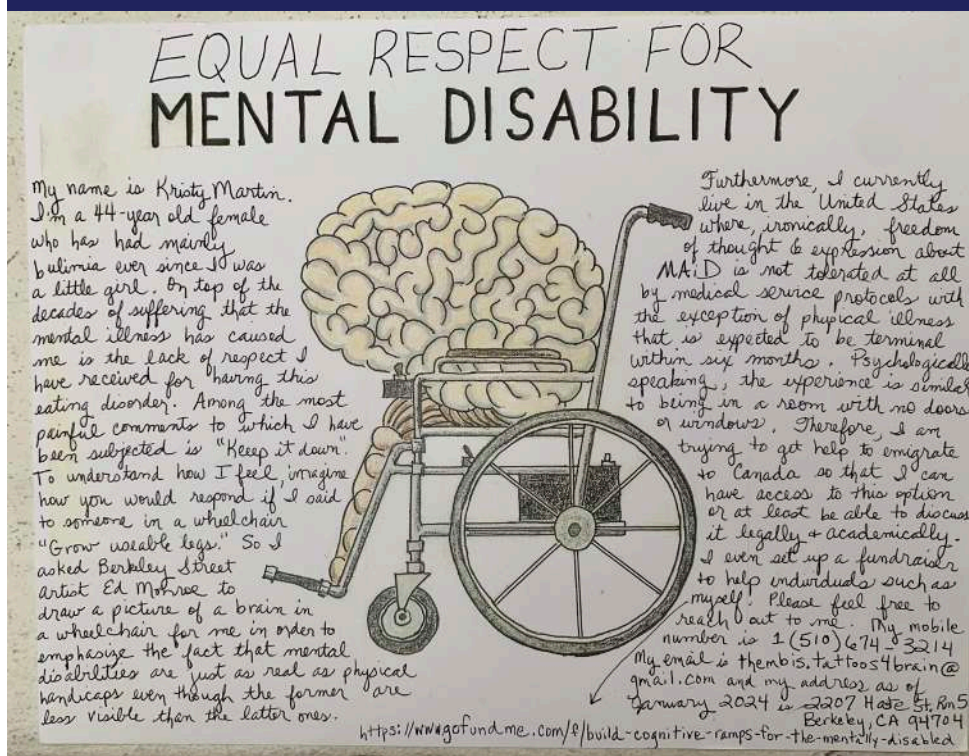 EQUAL RESPECT FOR
MENTAL DISABILITY
My name is Kristy Martin.
I'm a 44-year old female
who has had mainly
bulimia ever since I was
a little girl. On top of the
decades of suffering that the
mental illness has caused
me is the lack of respect I
have received for having this
eating disorder. Among the most
painful comments to which I have
been subjected is "Keep it down".
To understand how I feel, imagine
how you would respond if I said
to someone in a wheelchair
"Grow useable legs." So I
asked Berkeley Street
artist Ed Monroe to
draw a picture of a brain in
a wheelchair for me in order to
emphasize the fact that mental
disabilities are just as real as physical
handicaps even though the former are
less visible than the latter ones.
Furthermore, I currently
live in the United States
where, ironically, freedom
of thought & expression about
MAiD is not tolerated at all
by medical service protocols with
the exception of physical illness
that is expected to be terminal
within six months. Psychologically
speaking, the experience is similar
to being in a room with no doors
or windows. Therefore, I am
trying to get help to emigrate
to Canada so that I can
have access to this option
or at least be able to discuss
it legally & academically.
I even set up a fundraiser
to help individuals such as
myself. Please feel free to
reach out to me. My mobile
number is 1 (510) 674-3214
My email is thembis.tattoos4brain@
gmail.com and my address as of
January 2024 is 2207 Haste St, Rm 5
Berkeley, CA 94704
https://www.gofundme.com/f/build-cognitive-ramps-for-the-mentally-disabled